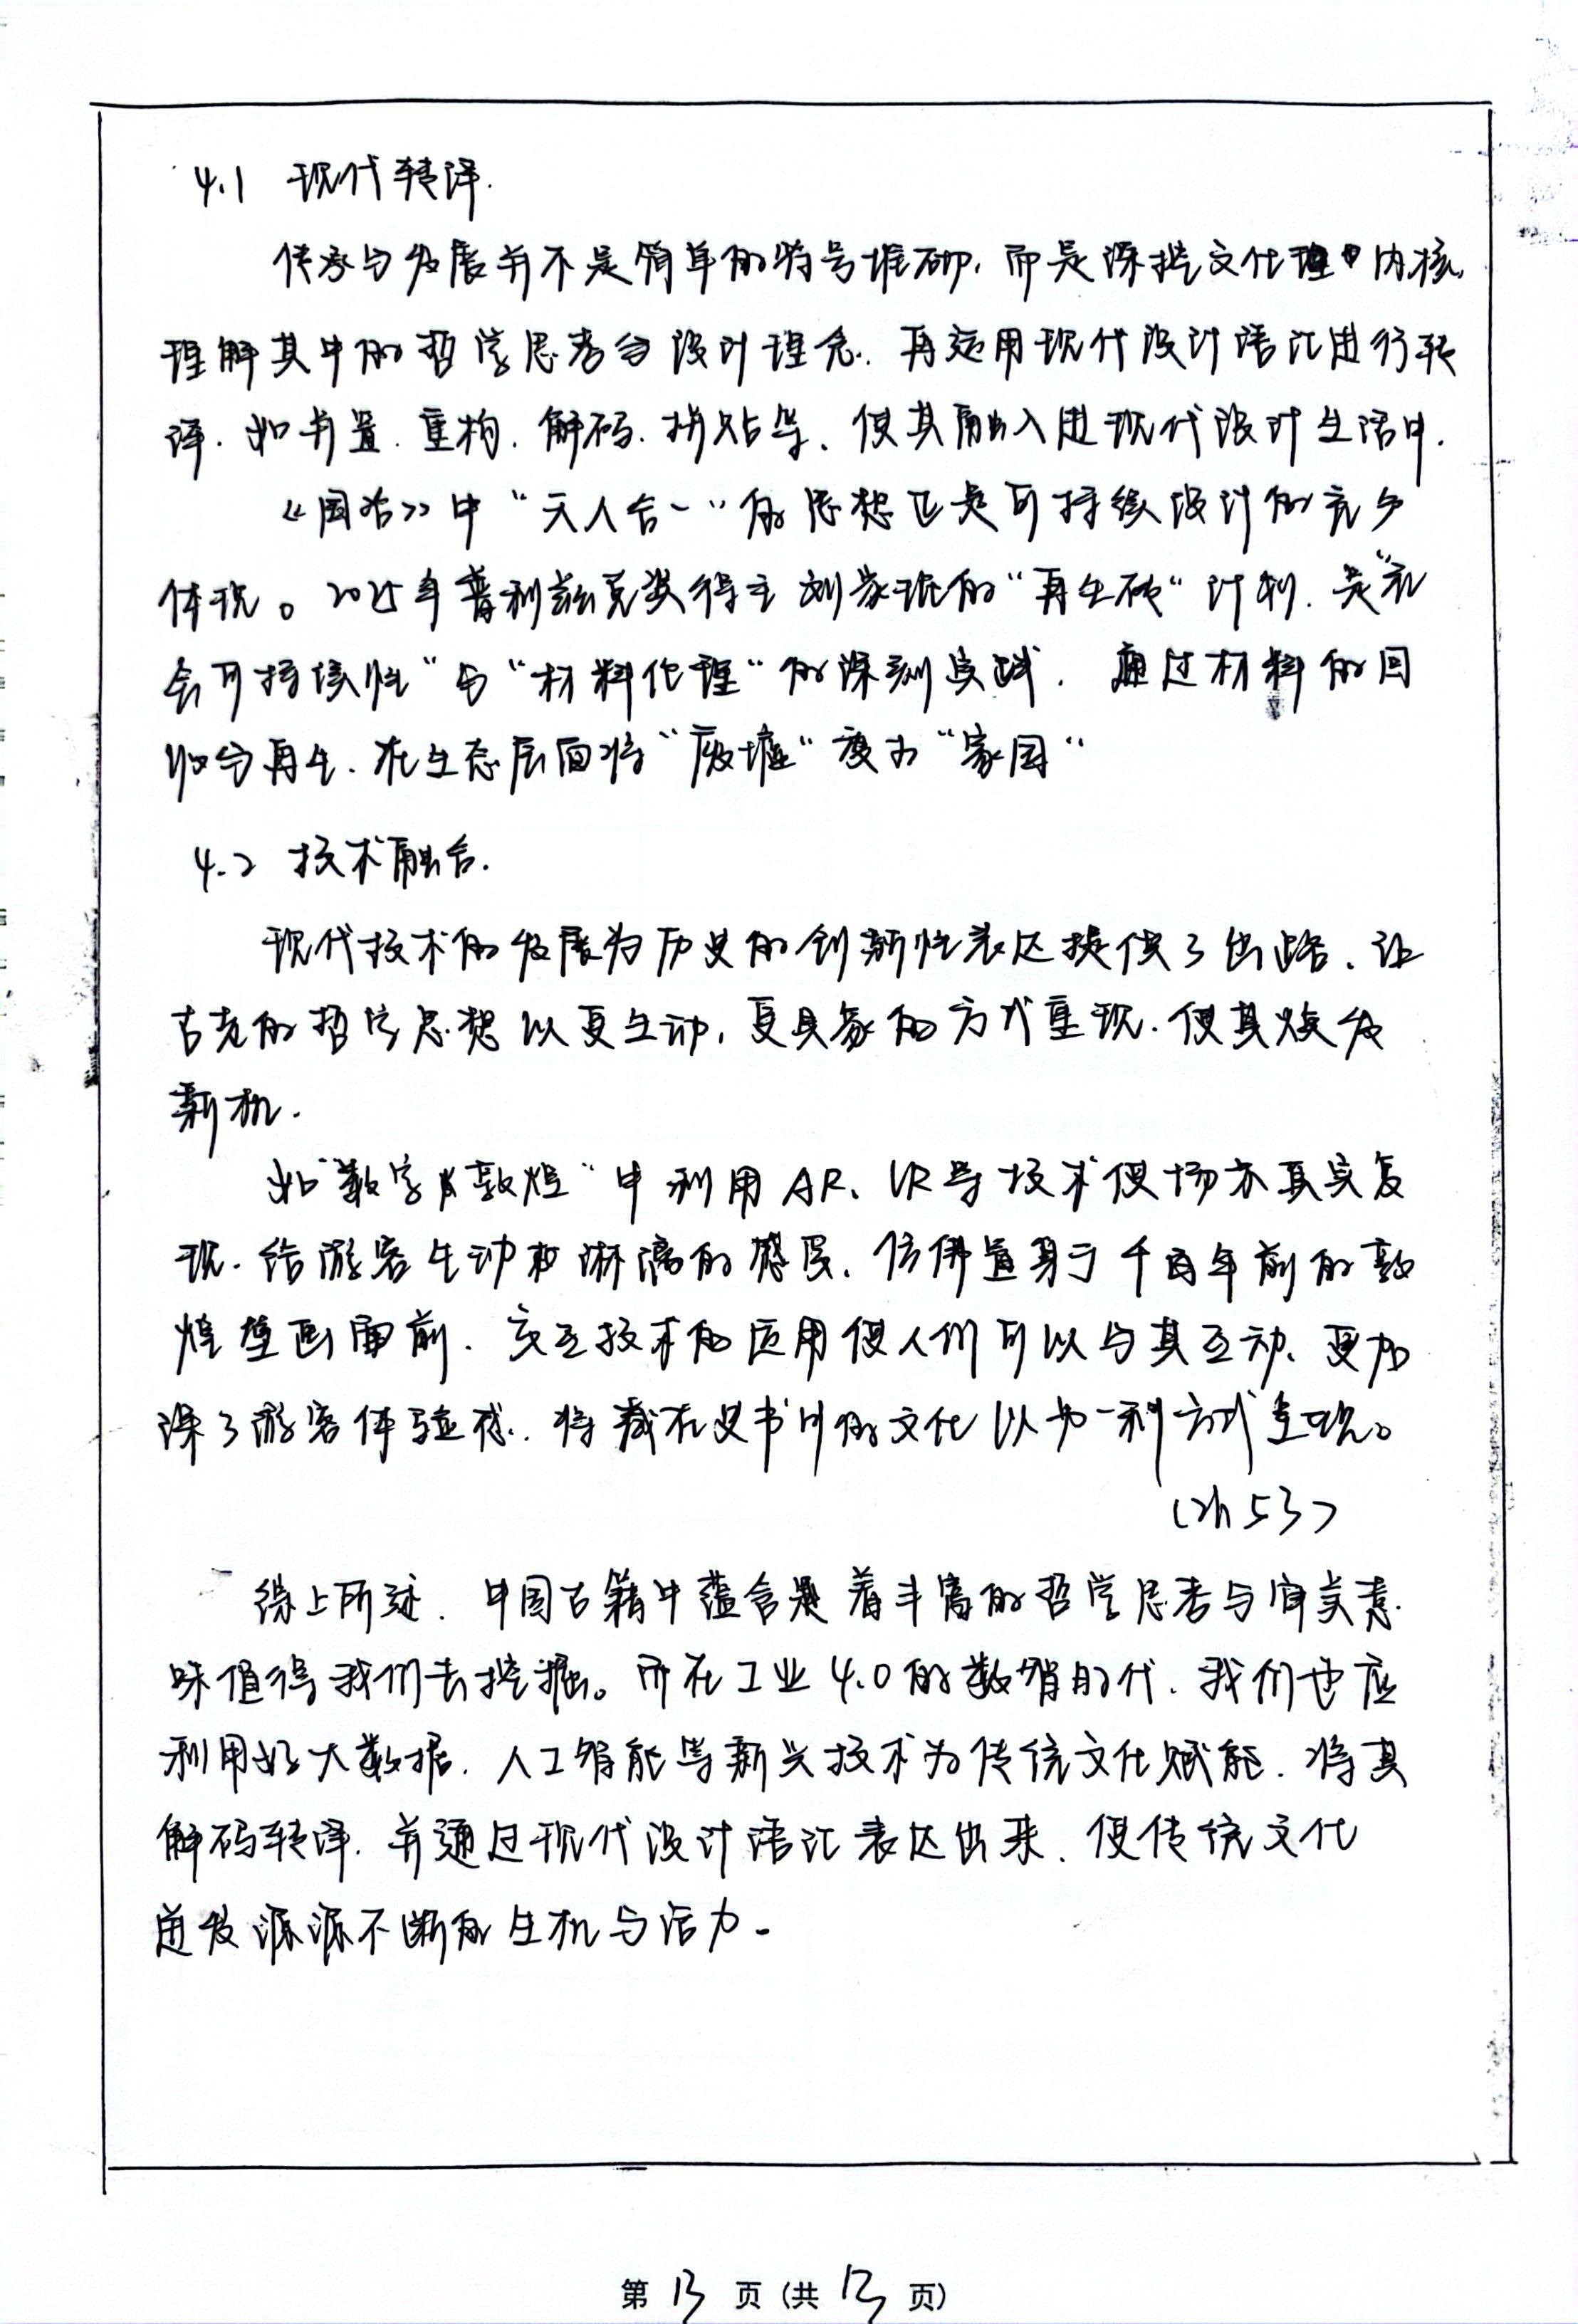 4.1 现代转译.
传承与发展并不是简单的符号堆砌，而是深挖文化内核，
理解其中的哲学思考与设计理念，再运用现代设计语汇进行转
译．如并置．重构．解码．拼贴等、使其融入进现代设计生活中．
《园冶》中“天人合一”的思想正是可持续设计的充分
体现。2025年普利兹克奖得主刘家琨的“再生砖”计划．是“社
会可持续性”与“材料伦理”的深刻实践．通过材料的回
收与再生．在生态层面将“废墟”变为“家园”
4.2 技术融合.
现代技术的发展为历史的创新性表达提供了出路、让
古老的哲学思想以更生动，更具象的方式重现．使其焕发
新机．
如“数字敦煌”中利用AR、VR等技术使场景真实复
现．给游客生动淋漓的感受、仿佛置身于千百年前的敦
煌壁画面前．交互技术的应用使人们可以与其互动、更加
深了游客体验感．将藏在史书中的文化以另一种方式呈现。
(2h53)
综上所述．中国古籍中蕴含着丰富的哲学思考与审美意
味值得我们去挖掘。而在工业4.0的数智时代．我们也应
利用好大数据．人工智能等新兴技术为传统文化赋能．将其
解码转译．并通过现代设计语汇表达出来．使传统文化
迸发源源不断的生机与活力．
第 13 页 (共 13 页)